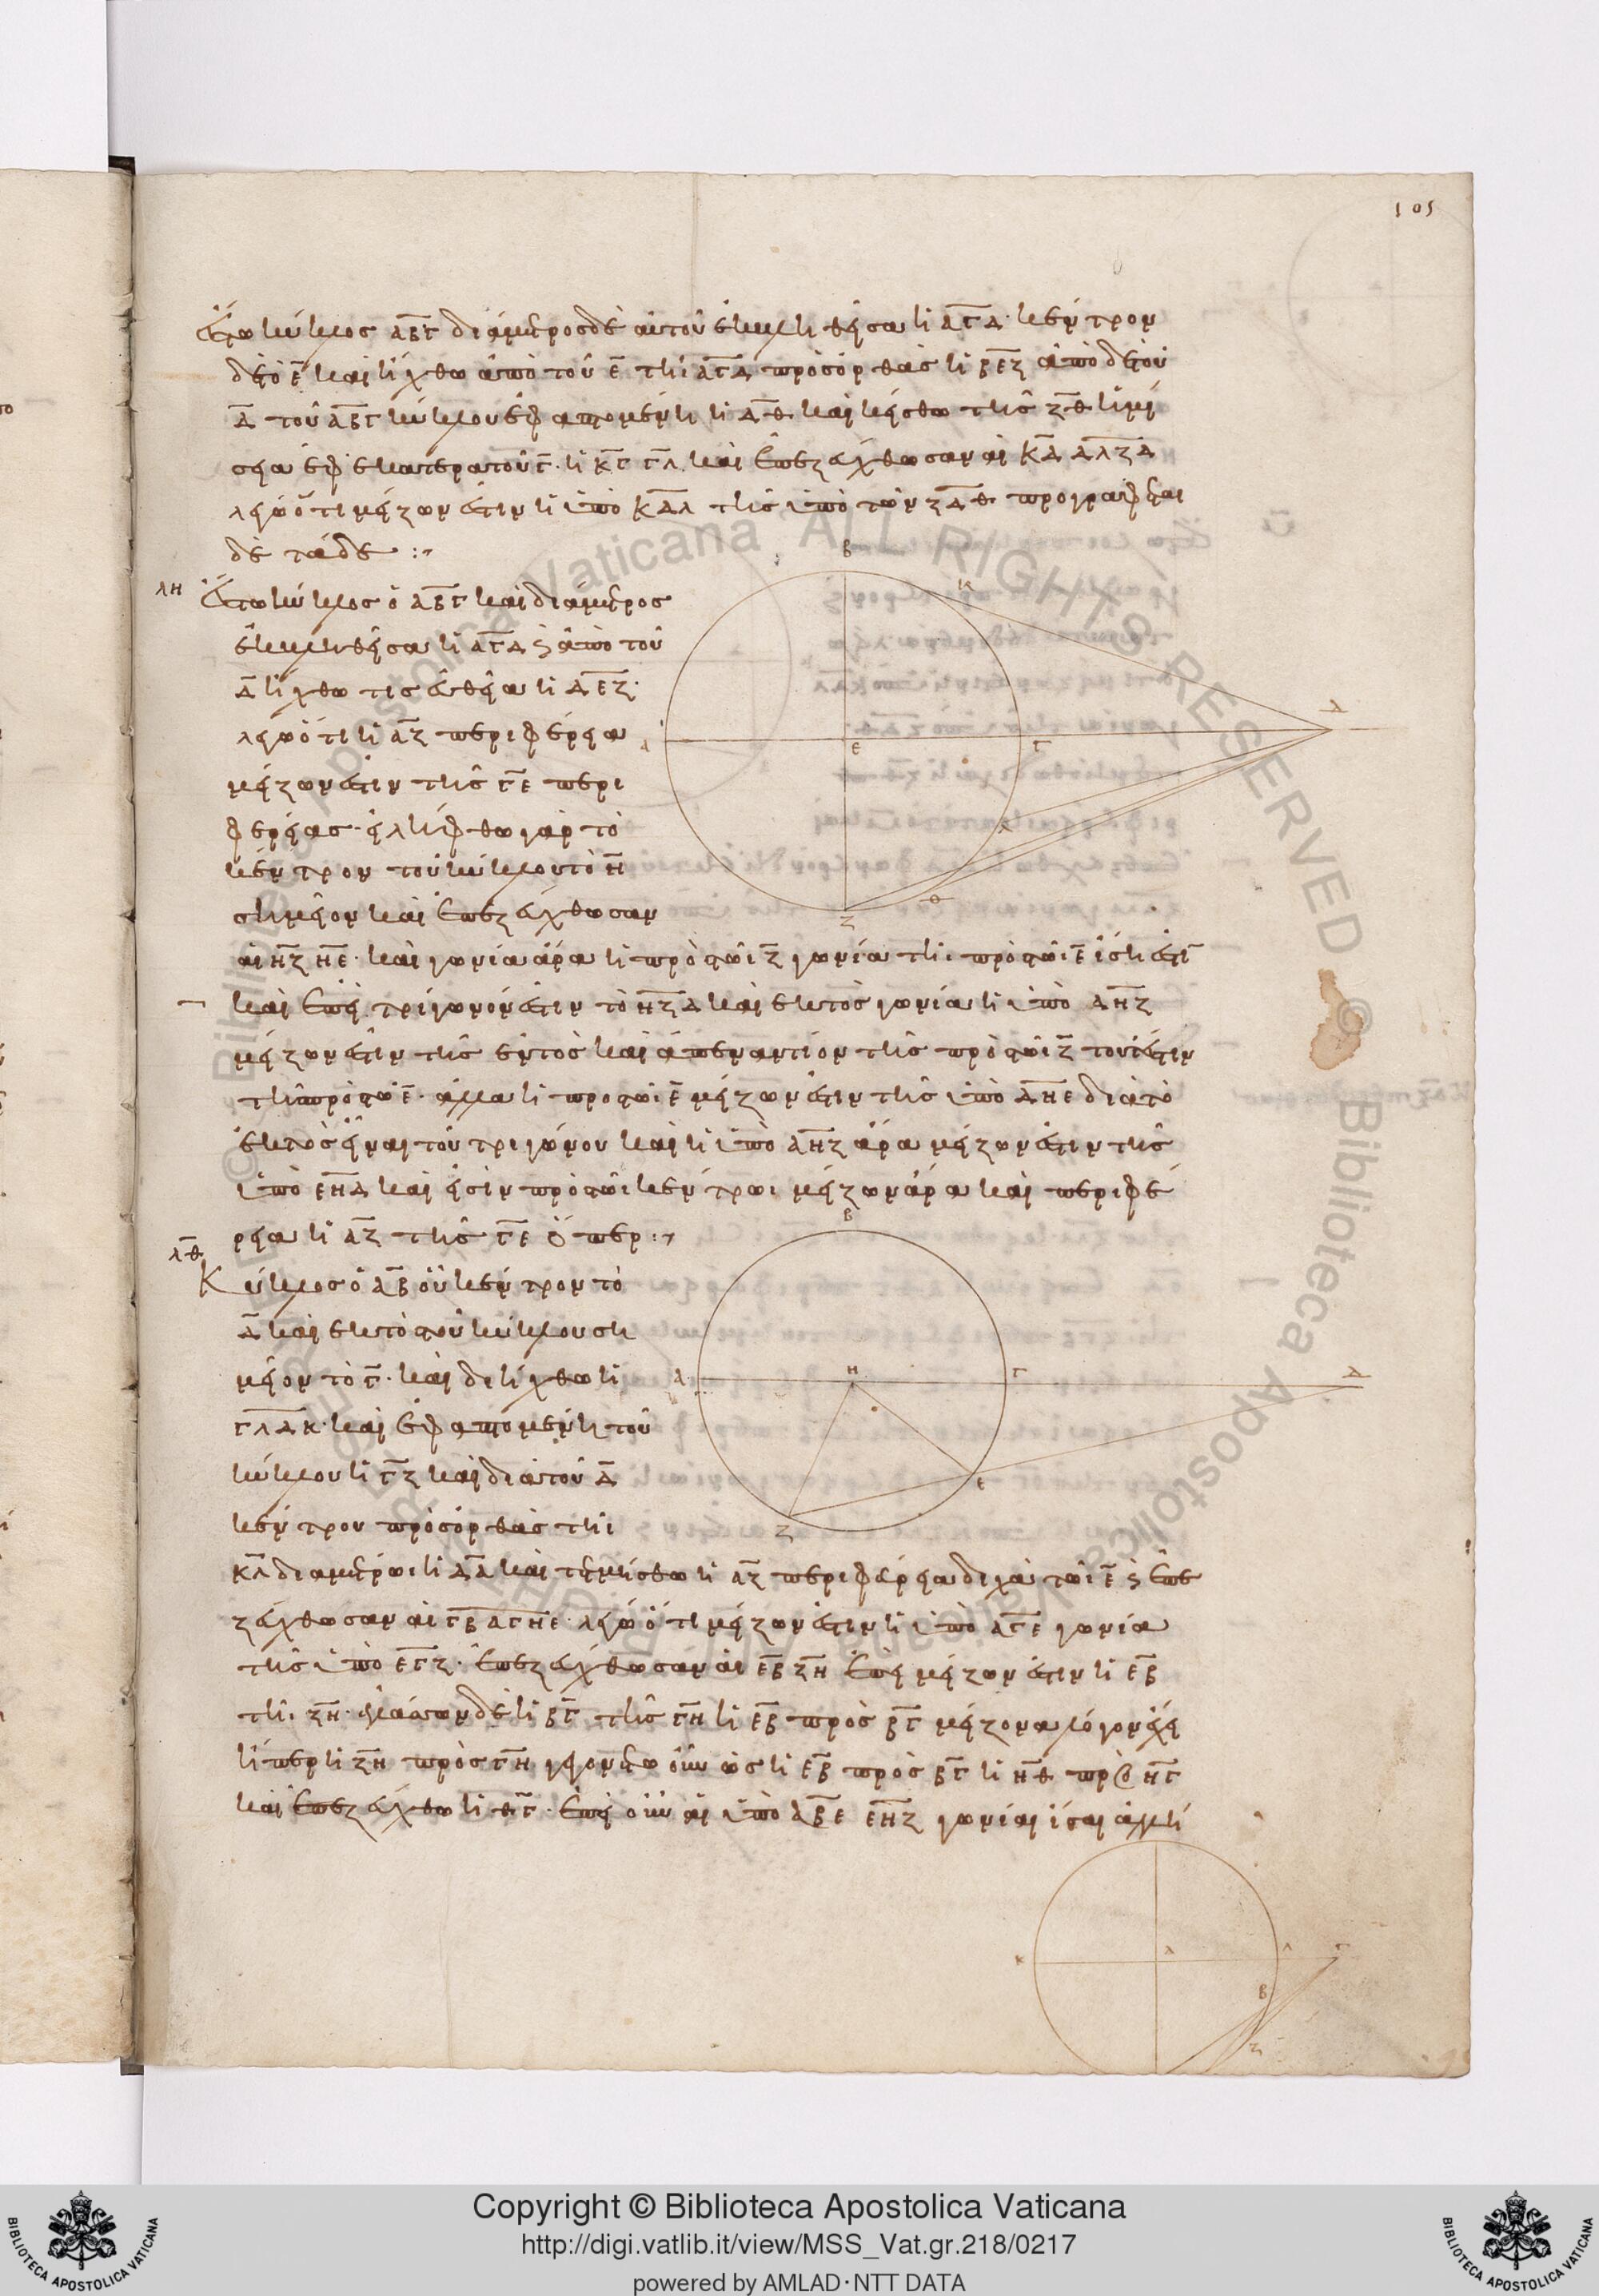 105
Ἔστω κύκλος ΑΒΓ διάμετρος δὲ αὐτοῦ ἐκβληθεῖσα ἡ ΑΓΔ· κέντρον
δὲ τὸ Ε καὶ ἤχθω ἀπὸ τοῦ Ε τῆι ΑΓΔ πρὸς ὀρθὰς ἡ ΒΕΖ ἀπὸ δὲ τοῦ
Δ τοῦ ΑΒΓ κύκλου ἐφαπτομένη ἡ ΔΘ καὶ κείσθω τῆς ΖΘ ἡμί
σεια ἐφ ἑκάτερα τοῦ Γ· ἡ ΚΓ ΓΛ καὶ ἐπεζεύχθωσαν αἱ ΚΔ ΔΛ ΖΔ
λέγω ὅτι μείζων ἐστιν ἡ ὑπὸ ΚΔΛ τῆς ὑπὸ τῶν ΖΔΘ προγράφεται
δὲ τάδε :~
λη Ἔστω κύκλος ὁ ΑΒΓ καὶ διάμετρος
ἐκβληθεῖσα ἡ ΑΓΔ ϛ ἀπὸ τοῦ
Δ ἤχθω τις εὐθεῖα ἡ ΔΕΖ·
λέγω ὅτι ἡ ΑΖ περιφέρεια
μείζων ἐστιν τῆς ΓΕ περι
φερείας· εἰλήφθω γὰρ τὸ
κέντρον τοῦ κύκλου τὸ Η
σημεῖον καὶ ἐπεζεύχθωσαν
αἱ ΗΖ ΗΕ· καὶ γωνία ἄρα ἡ πρὸς τῶι Ζ γωνία τῆι πρὸς τῶι Ε ἴση ἐστι
καὶ ἐπεὶ τρίγωνόν ἐστιν τὸ ΗΖΔ καὶ ἐκτὸς γωνία ἡ ὑπὸ ΑΗΖ
μείζων ἐστιν τῆς ἐντὸς καὶ ἀπεναντίον τῆς πρὸς τῶι Ζ τουτέστιν
τῆς πρὸς τῶ Ε· ἀλλα ἡ προς τῶι Ε μείζων ἐστιν τῆς ὑπὸ ΔΗΕ διὰ τὸ
ἐκτὸς εἶναι τοῦ τριγώνου καὶ ἡ ὑπὸ ΑΗΖ ἄρα μείζων ἐστιν τῆς
ὑπὸ ΕΗΔ καὶ εἰσὶν πρὸς τῶι κέντρωι μείζων ἄρα καὶ περιφέ
ρεια ἡ ΑΖ τῆς ΓΕ ὅπερ :~
λθ Κύκλος ὁ ΑΒ οὗ κέντρον τὸ
Δ καὶ ἐκτὸς τοῦ κύκλου ση
μεῖον τὸ Γ· καὶ διήχθω ἡ
ΓΛΔΚ· καὶ ἐφαπτομένη τοῦ
κύκλου ἡ ΓΖ καὶ διὰ τοῦ Δ
κέντρου πρὸς ὀρθὰς τῆι
ΚΛ διαμέτρωι ἡ ΔΑ καὶ τετμήσθω ἡ ΑΖ περιφέρεια διχὰ τῶι Ε ϛ ἐπε
ζεύχθωσαν αἱ ΓΒΑ ΓΗΕ· λέγω ὅτι μείζων ἐστιν ἡ ὑπὸ ΑΓΕ γωνία
τῆς ὑπὸ ΕΓΖ· ἐπεζεύχθωσαν αἱ ΕΒ ΖΗ ἐπεὶ μείζων ἐστιν ἡ ΕΒ
τῆς ΖΗ· ἐλάσσων δὲ ἡ ΒΓ τῆς ΓΗ ἡ ΕΒ πρὸς ΒΓ μείζονα λόγον ἔχει
ἤπερ ἡ ΖΗ πρὸς ΓΗ γεγονέτω οὖν ὡς ἡ ΕΒ πρὸς ΒΓ ἡ ΗΘ πρὸς ΗΓ
καὶ ἐπεζεύχθω ἡ ΘΓ· ἐπεὶ οὖν αἱ ὑπὸ ΑΒΕ ΕΗΖ γωνίαι ἴσαι ἀλλή
Β
Κ
Δ
Α
Ε
Γ
Λ
Θ
Ζ
Β
Α
Η
Γ
Δ
Ε
Ζ
Κ
Δ
Λ
Γ
Β
Ζ
© Biblioteca Apostolica Vaticana ALL RIGHTS RESERVED
Copyright © Biblioteca Apostolica Vaticana
http://digi.vatlib.it/view/MSS_Vat.gr.218/0217
powered by AMLAD·NTT DATA
BIBLIOTECA APOSTOLICA VATICANA
BIBLIOTECA APOSTOLICA VATICANA